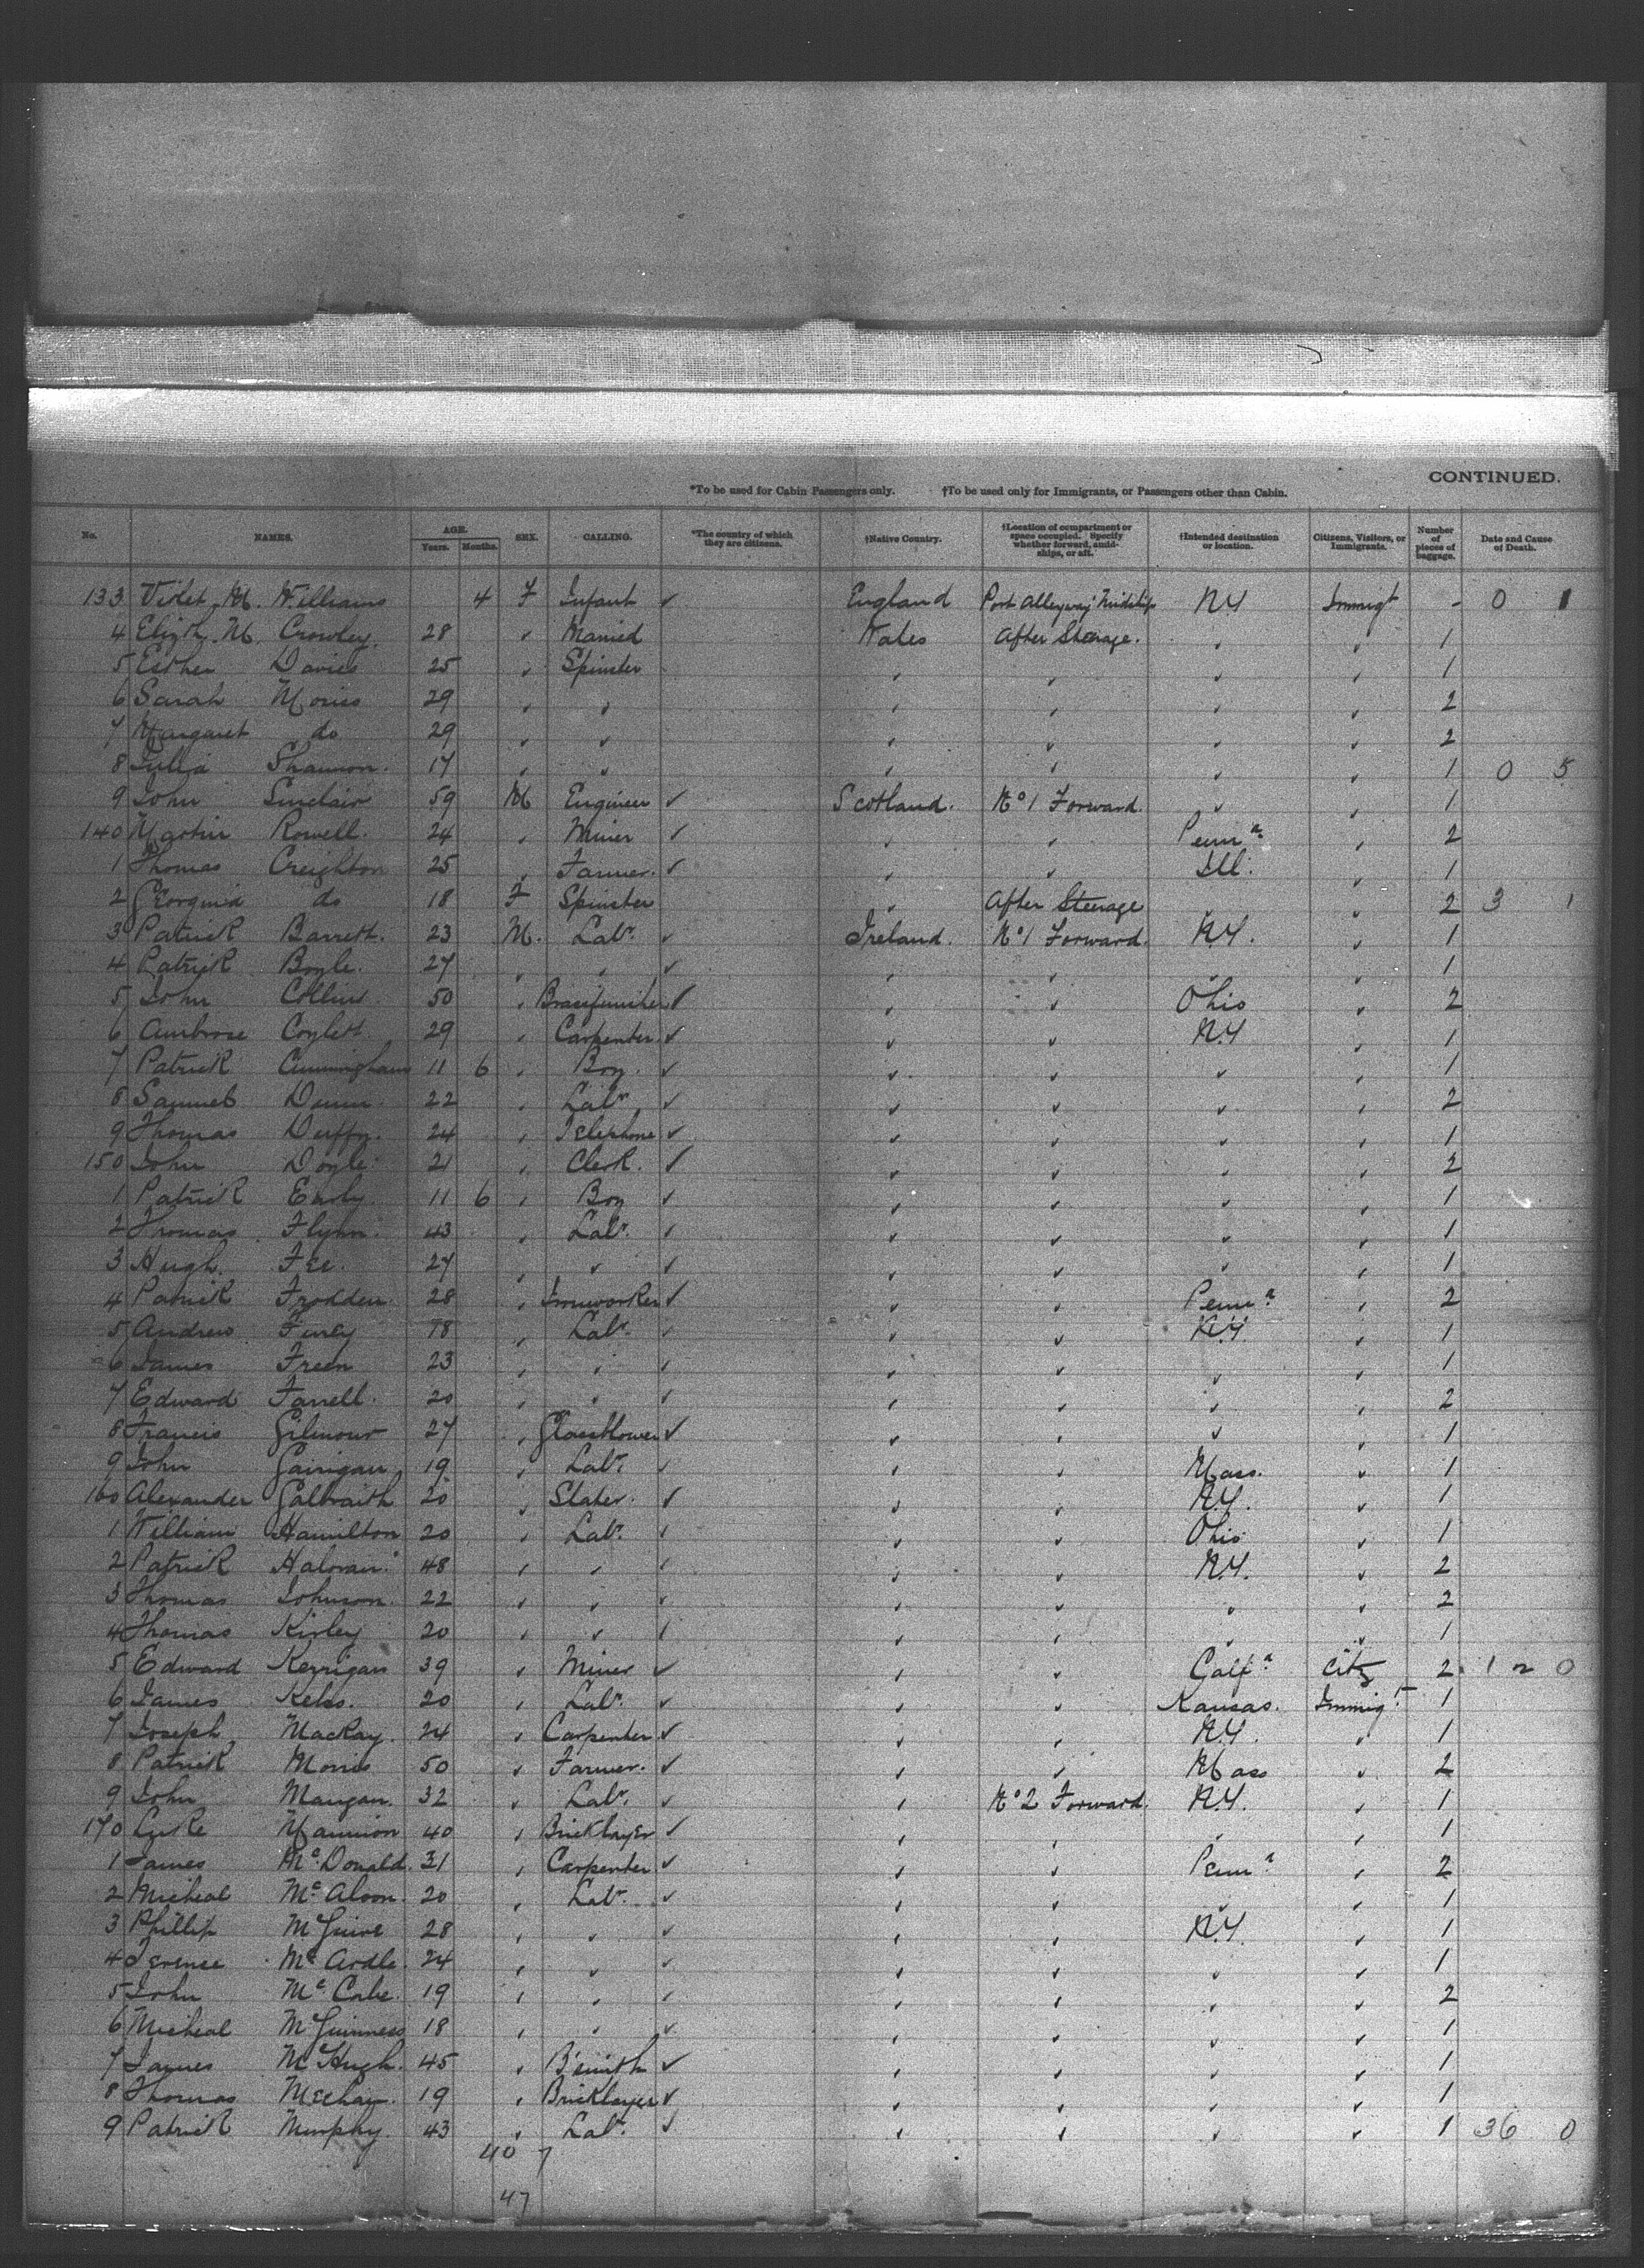 CONTINUED.
*To be used for Cabin Passengers only. †To be used only for Immigrants, or Passengers other than Cabin.
No. NAMES. AGE. Years. Months. SEX. CALLING. *The country of which they are citizens. †Native Country. †Location of compartment or space occupied. Specify whether forward, amidships, or aft. †Intended destination or location. Citizens, Visitors, or Immigrants. Number of pieces of baggage. Date and Cause of Death.
133 Violet M. Williams 4 F Infant ✓ England Port Alleyway Midship N.Y Immigt - 0 1
4 Elizth M. Crowley. 28 " Married Wales After Steerage. " " 1
5 Esther Davies 25 " Spinster " " " " 1
6 Sarah Moriss 29 " " " " " " 2
7 Margaret do 29 " " " " " " 2
8 Julia Shannon. 17 " " " " " " 1 0 5
9 John Sinclair 59 M Engineer ✓ Scotland. No 1 Forward. " " 1
140 Rowell. 24 " Miner ✓ " " Penna " 2
1 Thomas Creighton 25 " Farmer. ✓ " " Ill. " 1
2 Georgina do 18 F Spinster " After Steerage " " 2 3 1
3 Patrick Barrett. 23 M. Labr. ✓ Ireland. No 1 Forward. N.Y. " 1
4 Patrick Boyle. 27 " " ✓ " " " " 1
5 John Collins. 50 " Brassfinisher ✓ " " Ohio " 2
6 Ambrose Coylett 29 " Carpenter. ✓ " " N.Y " 1
7 Patrick Cunningham 11 6 " Boy. ✓ " " " " 1
8 Samuel Dunn 22 " Labr. ✓ " " " " 2
9 Thomas Duffy. 24 " Telephone ✓ " " " " 1
150 John Doyle 21 " Clerk. ✓ " " " " 2
1 Patrick Early 11 6 " Boy ✓ " " " " 1
2 Thomas Flynn 43 " Labr. ✓ " " " " 1
3 Hugh Fee. 27 " " ✓ " " " " 1
4 Patrick Frodden. 28 " Ironworker ✓ " " Penna " 2
5 Andrew 18 " Labr. ✓ " " N.Y " 1
6 James Freen 23 " " ✓ " " " " 1
7 Edward Farrell. 20 " " ✓ " " " " 2
8 Francis Gilmour 27 " Glassblower ✓ " " " " 1
9 John Gairigan 19 " Labr. ✓ " " Mass. " 1
160 Alexander Galbraith 20 " Slater. ✓ " " N.Y. " 1
1 William Hamilton 20 " Labr. ✓ " " Ohio " 1
2 Patrick Haloran 48 " " ✓ " " N.Y. " 2
3 Thomas Johnson. 22 " " ✓ " " " " 2
4 Thomas Kirley 20 " " ✓ " " " " 1
5 Edward Kerrigan 39 " Miner ✓ " " Calfa Citz 2. 1 2 0
6 James Kelso. 20 " Labr. ✓ " " Kansas. Immigt 1
7 Joseph MacKay. 24 " Carpenter ✓ " " N.Y. " 1
8 Patrick Morris 50 " Farmer. ✓ " " Mass " 2
9 John Mangan. 32 " Labr. ✓ " No 2 Forward. N.Y. " 1
170 Luke Mannion 40 " Bricklayer ✓ " " " " 1
1 James McDonald. 31 " Carpenter ✓ " " Penna " 2
2 Micheal McAloon. 20 " Labr. ✓ " " " " 1
3 Phillip McGuire 28 " " ✓ " " N.Y. " 1
4 Terence McArdle. 24 " " ✓ " " " " 1
5 John McCabe. 19 " " ✓ " " " " 2
6 Micheal McGuinness 18 " " ✓ " " " " 1
7 James McHugh. 45 " B'smith ✓ " " " " 1
8 Thomas Meehan. 19 " Bricklayer ✓ " " " " 1
9 Patrick Murphy. 43 " Labr. ✓ " " " " 1 36 0
40 7
47